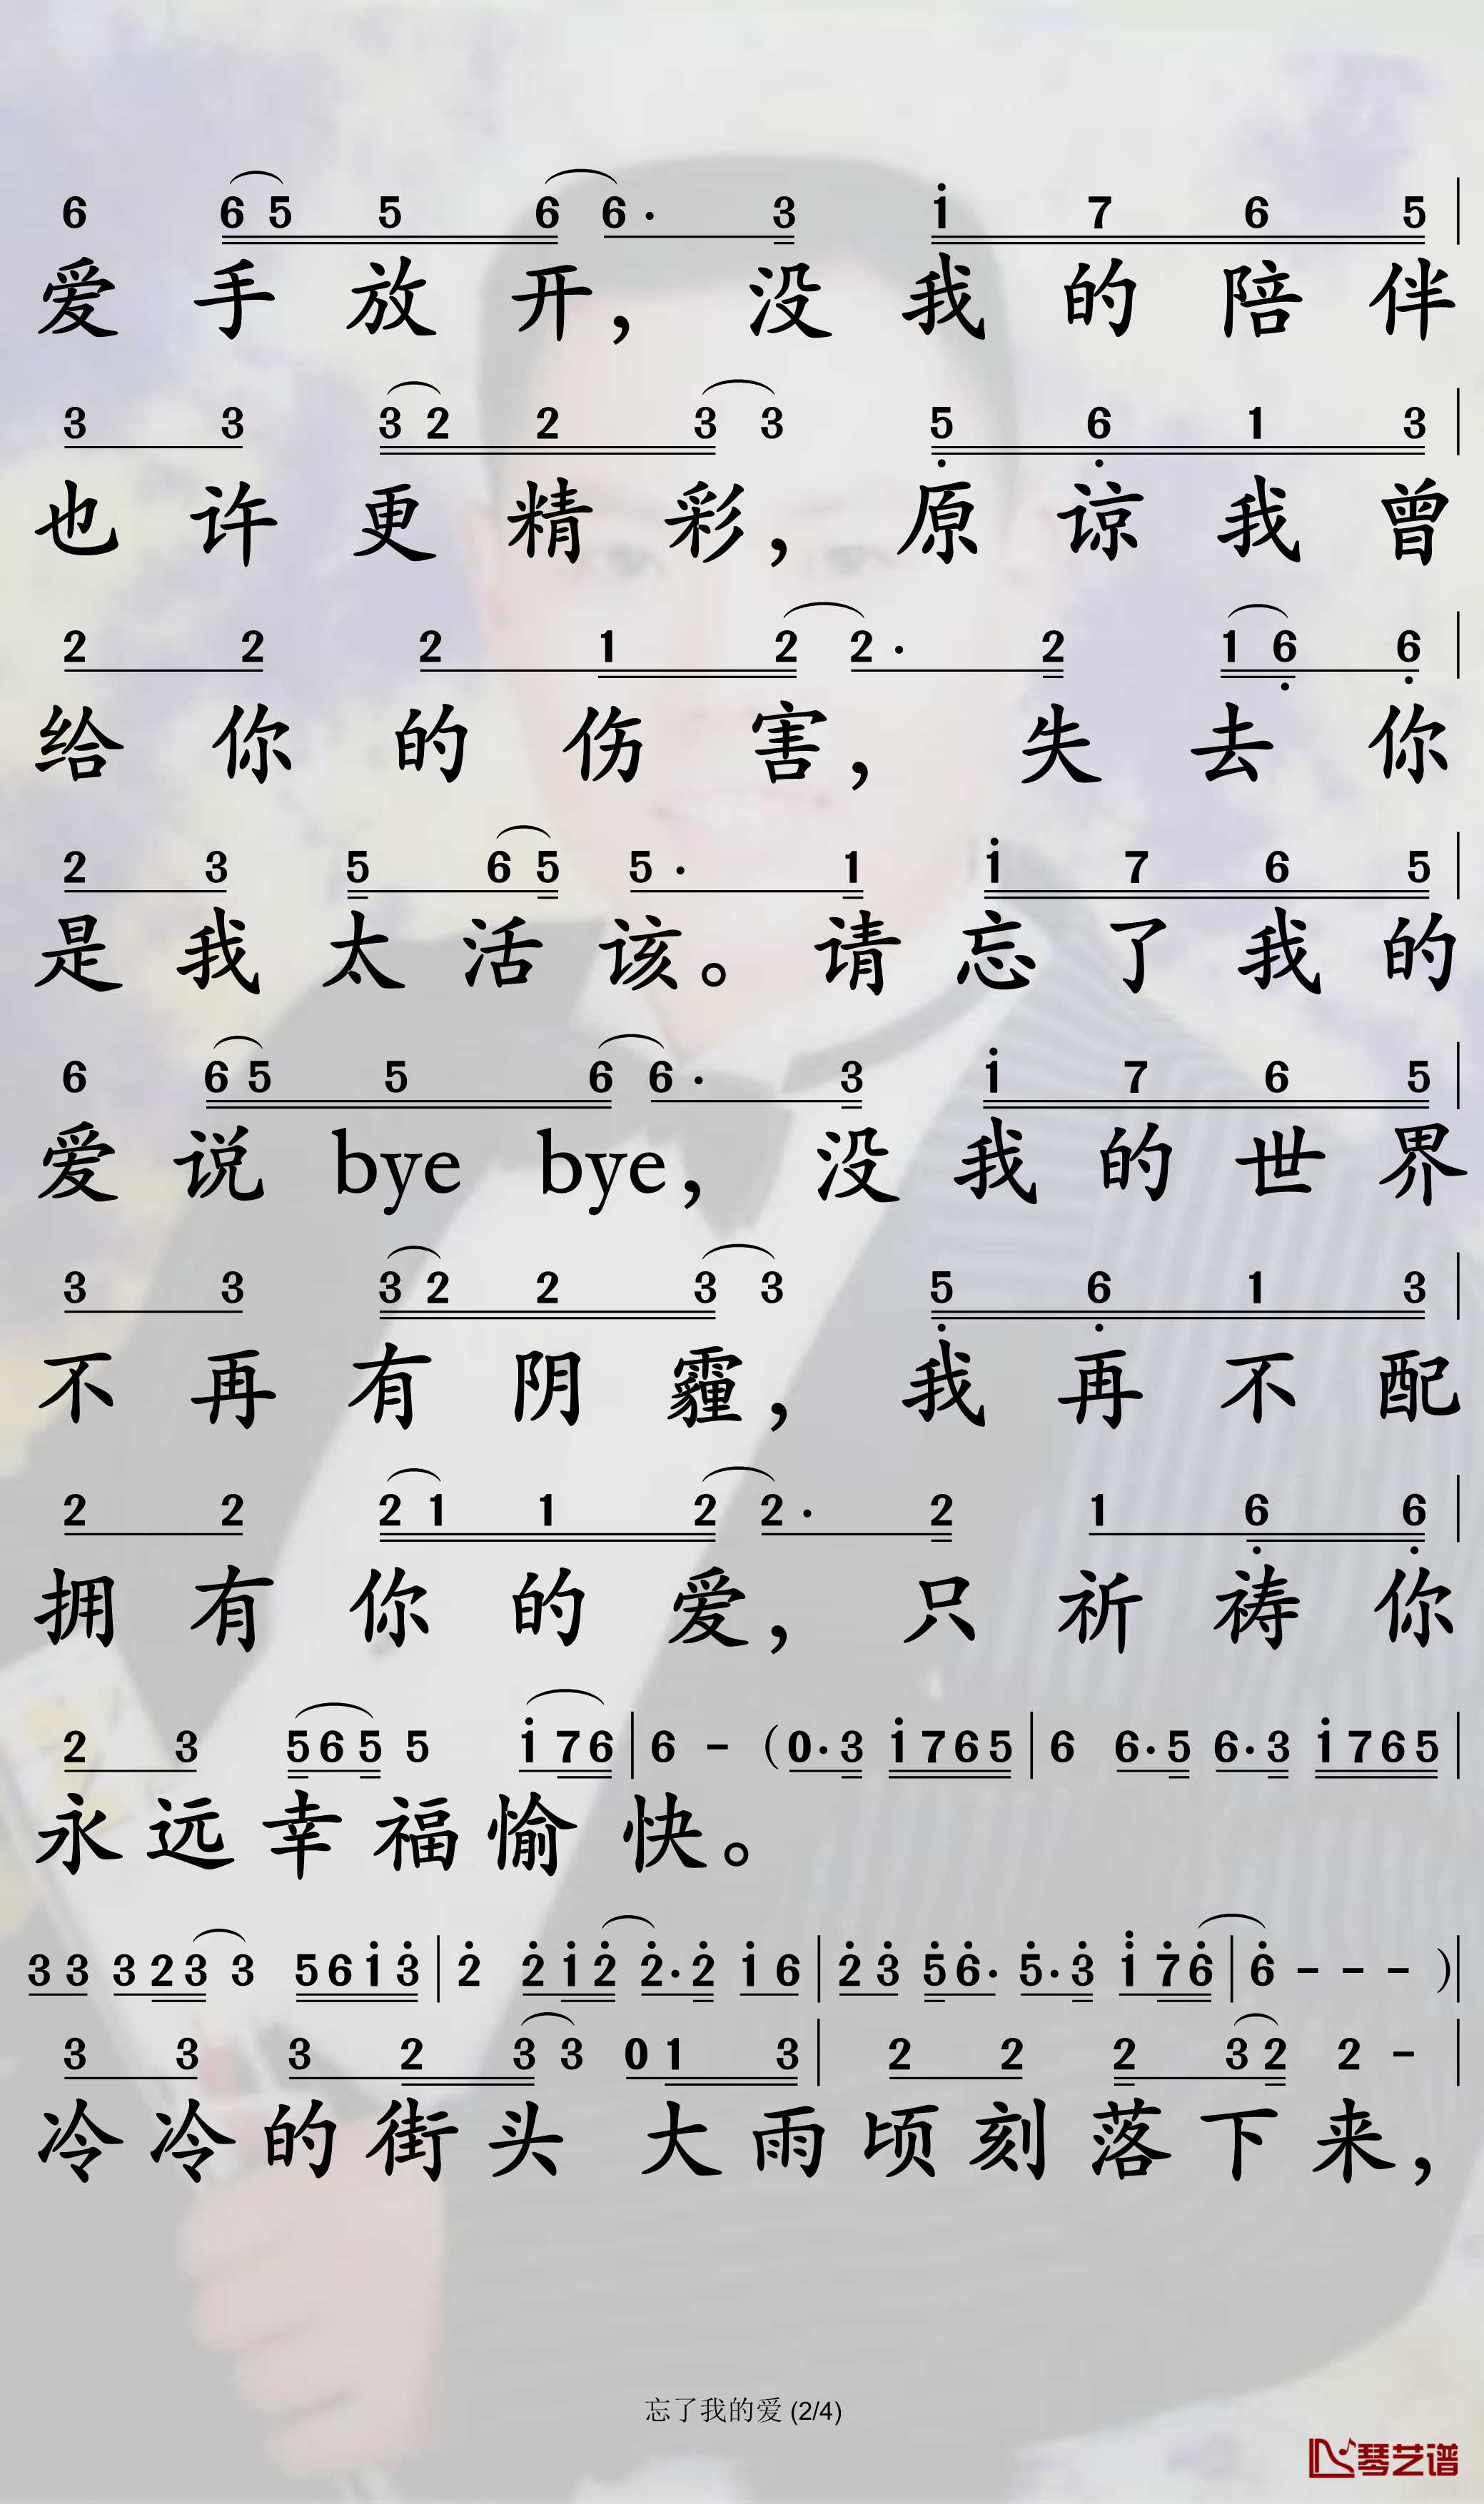 6 6 5 5 6 6· 3 i 7 6 5 |
爱手放开，没我的陪伴
3 3 3 2 2 3 3 5̣ 6̣ 1 3 |
也许更精彩，原谅我曾
2 2 2 1 2 2· 2 1 6̣ 6̣ |
给你的伤害，失去你
2 3 5 6 5 5· 1 i 7 6 5 |
是我太活该。请忘了我的
6 6 5 5 6 6· 3 i 7 6 5 |
爱说bye bye，没我的世界
3 3 3 2 2 3 3 5̣ 6̣ 1 3 |
不再有阴霾，我再不配
2 2 2 1 1 2 2· 2 1 6̣ 6̣ |
拥有你的爱，只祈祷你
2 3 5 6 5 5 i 7 6 | 6 - (0· 3 i 7 6 5 | 6 6· 5 6· 3 i 7 6 5 |
永远幸福愉快。
3 3 3 2 3 3 5 6 i 3̇ | 2̇ 2̇ i 2̇ 2̇· 2̇ i 6 | 2̇ 3̇ 5̇ 6̇· 5̇· 3̇ 1̈ 7̇ 6̇ | 6̇ - - - ) |
3 3 3 2 3 3 0 1 3 | 2 2 2 3 2 2 - |
冷冷的街头 大雨顷刻落下来，
忘了我的爱 (2/4)
琴艺谱